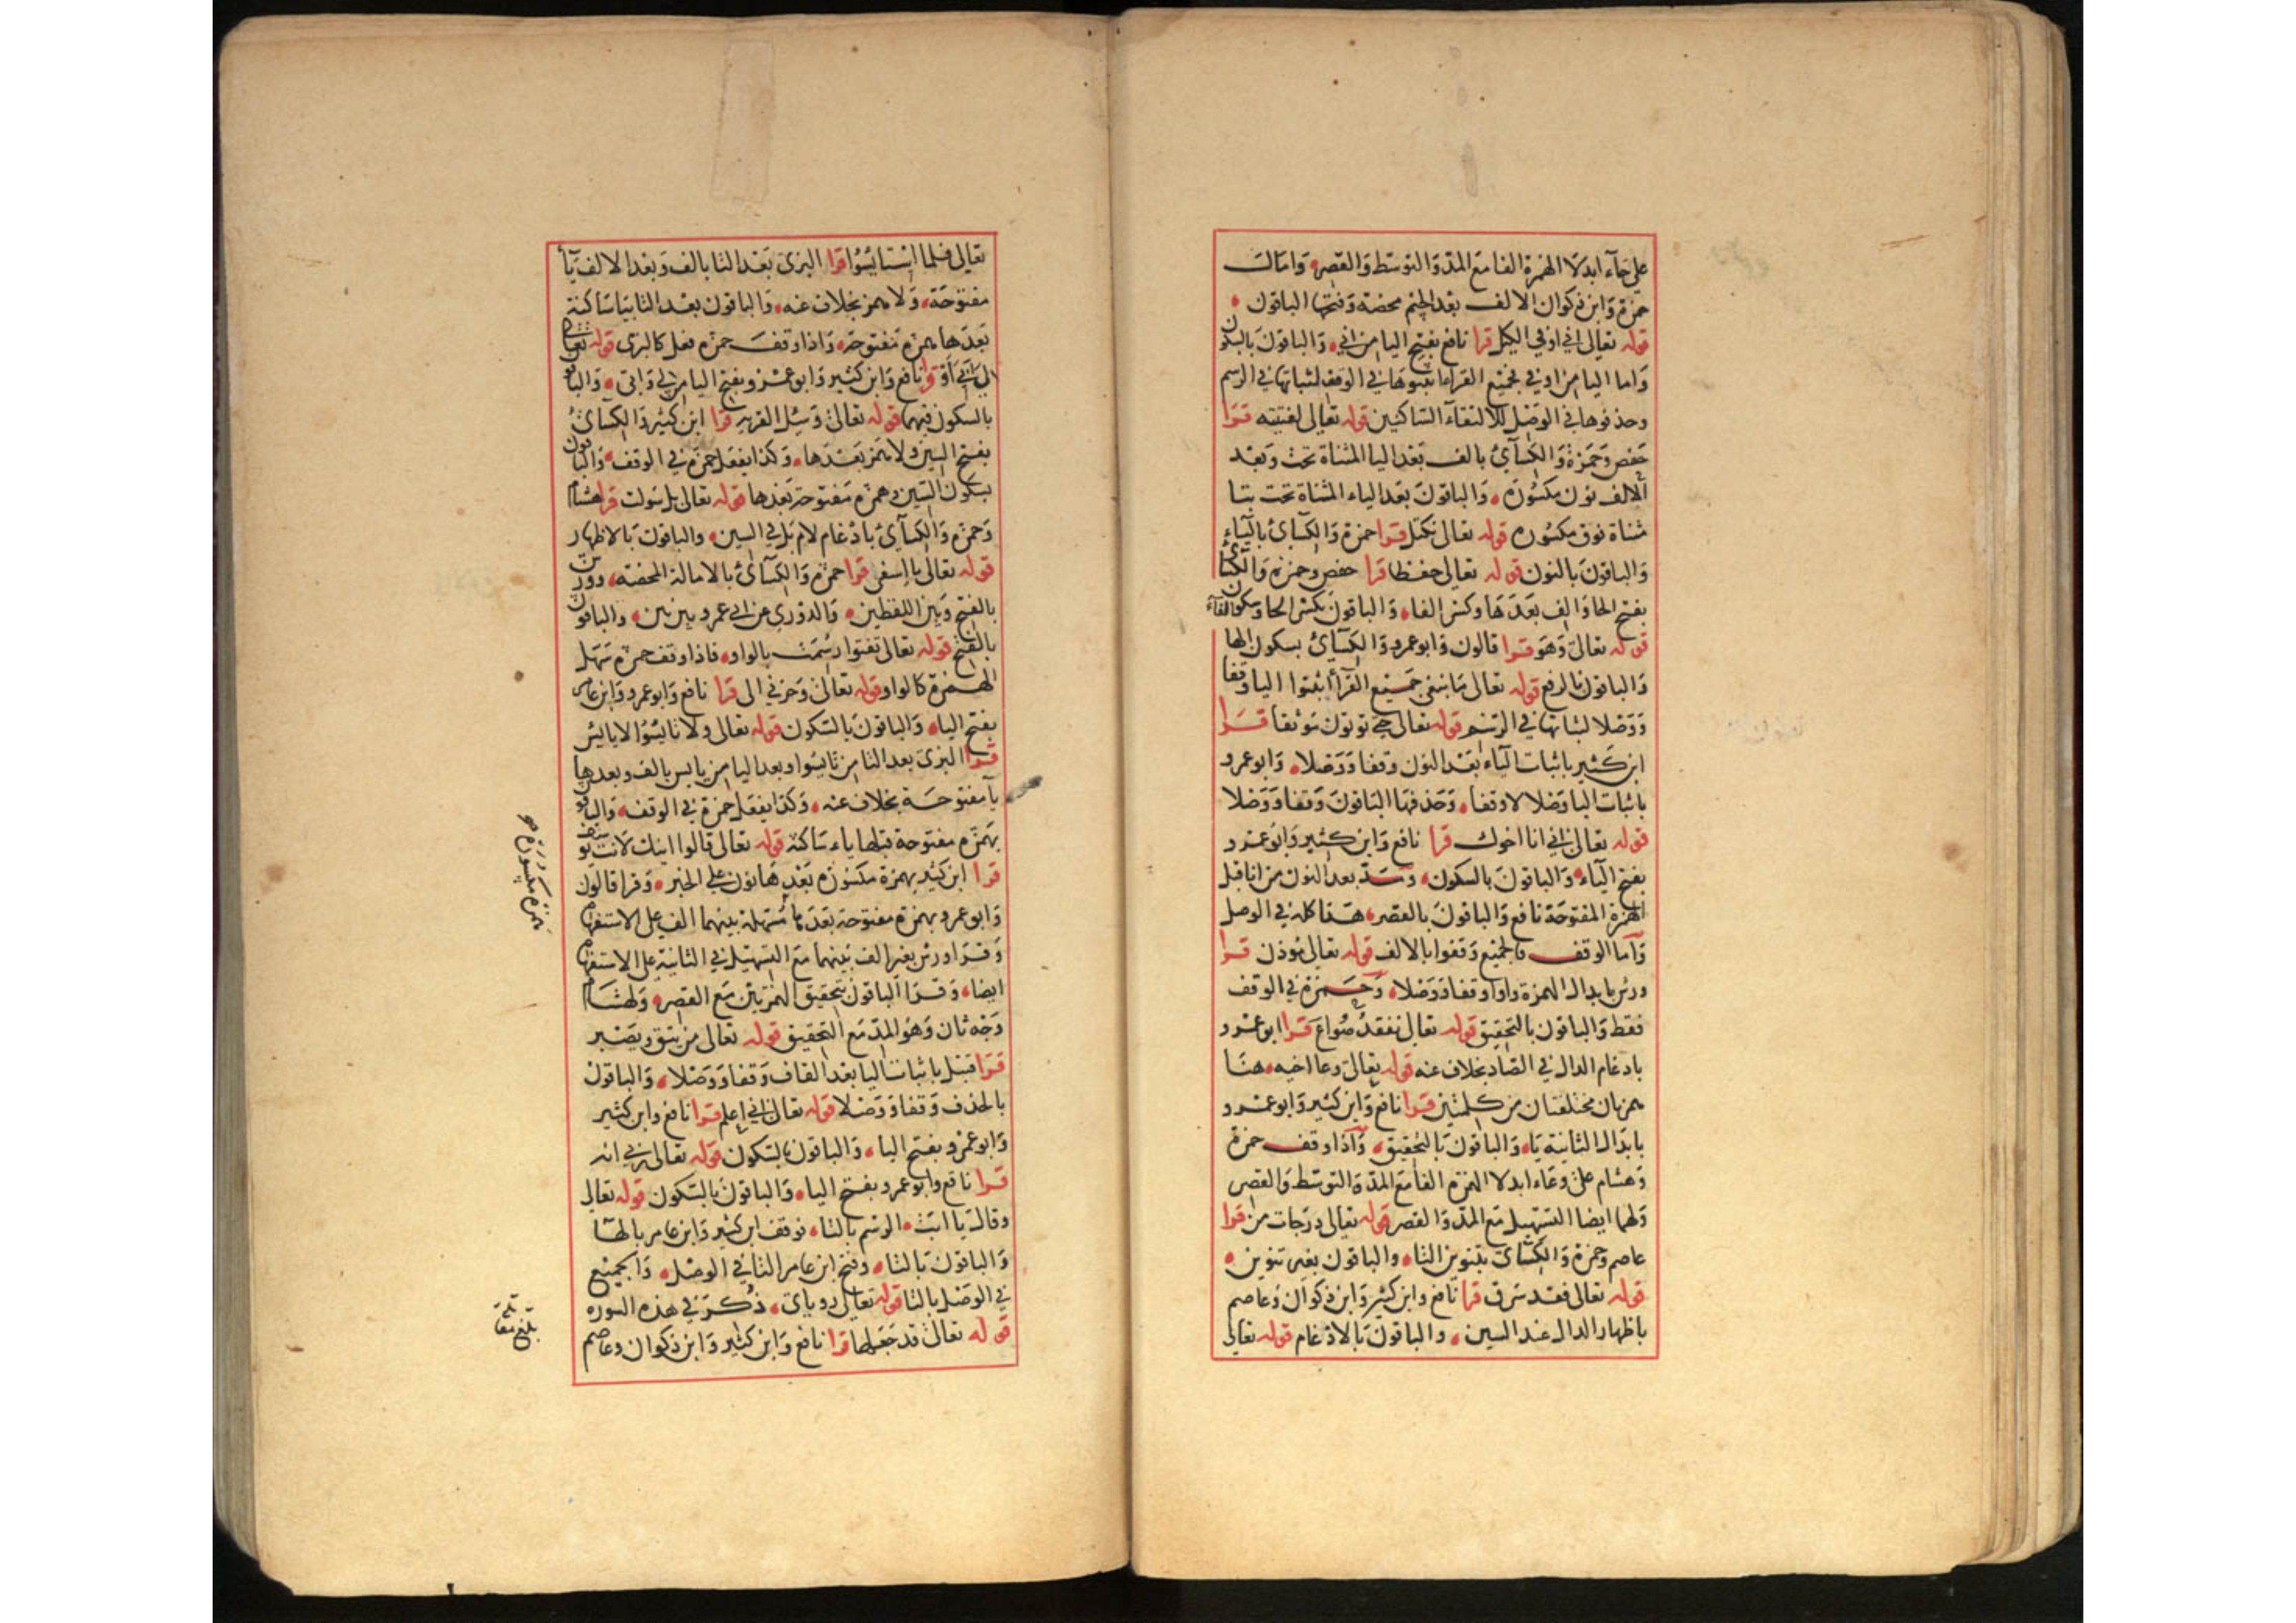 على جآء ابدلا الهمزة الفا مع المد والتوسط والقصر، وامالت
حمزة وابن ذكوان الالف بعد الجيم محضة وفتحها الباقون
قوله تعالى اني اوفي الكيل قرا نافع بفتح اليا من اني، والباقون بالسكون
واما اليا من اوفي فجميع القراء يثبتوها في الوقف لثباتها في الرسم
وحذفوها في الوصل للالتقآء الساكنين قوله تعالى لفتيته قرا
حفص وحمزة والكسآئ بالف بعد اليا المثناة تحت وبعد
الالف نون مكسورة، والباقون بعد الياء المثناة تحت بتا
مثناة فوق مكسوره قوله تعالى نكتل قرا حمزة والكسائ باليآء
والباقون بالنون قوله تعالى حفظا قرا حفص وحمزة والكسائ
بفتح الحا والف بعدها وكسر الفا، والباقون بكسر الحا وسكون الفآء
قوله تعالى وهو قرا قالون وابو عمرو والكسآئ بسكون الها
والباقون بالرفع قوله تعالى ما نبغي جميع القرآ اثبتوا اليا وقفا
ووصلا لثباتها في الرسم قوله تعالى حتي توتون موثقا قرا
ابن كثير باثبات اليآء بعد النون وقفا ووصلا، وابو عمرو
باثبات اليا وصلا لا وقفا، وحذفها الباقون وقفا ووصلا
قوله تعالى اني انا اخوك قرا نافع وابن كثير وابو عمرو
بفتح اليآء والباقون بالسكون، ومد بعد النون من انا قبل
الهمزة المفتوحة نافع والباقون بالقصر، هذا كله في الوصل
وآما الوقف فالجميع وقفوا بالالف قوله تعالى موذن قرا
ورش بابدال الهمزة واوا وقفا ووصلا، وحمزة في الوقف
فقط والباقون بالتحقيق قوله تعالى نفقد صواع قرا ابو عمرو
بادغام الدال في الصاد بخلاف عنه قوله تعالى وعا اخيه، هنا
همزتان مختلفتان من كلمتين قرا نافع وابن كثير وابو عمرو
بابدال الثانية يا، والباقون بالتحقيق، وآذا وقف حمزة
وهشام على وعاء ابدلا الهمزة الفا مع المد والتوسط والقصر
ولهما ايضا التسهيل مع المد والقصر قوله تعالى درجات من قرا
عاصم وحمزة والكسائ بتنوين التا، والباقون بغير تنوين
قوله تعالى فقد سرق قرا نافع وابن كثير وابن ذكوان وعاصم
باظهار الدال عند السين، والباقون بالادغام قوله تعالى
تعالى فلما استايسوا قرا البزى بعد التا بالف وبعد الالف يآ
مفتوحة، ولا همز بخلاف عنه، والباقون بعد التا بيا ساكنة
بعدها همزه مفتوحة، واذا وقف حمزه فعل كالبزى قوله تعالى
لي ابي او قرا نافع وابن كثير وابو عمرو بفتح اليا من لي وابي، والباقون
بالسكون فيهما قوله تعالى وسئل القريه قرا ابن كثير والكسائ
بفتح السين ولا همز بعدها، وكذا يفعل حمزه في الوقف، والباقون
بسكون السين وهمزه مفتوحة بعدها قوله تعالى بل سولت قرا هشام
وحمزه والكسآئ بادغام لام بل في السين، والباقون بالاظهار
قوله تعالى يا اسفى قرا حمزه والكسآئ بالامالة المحضه، وورش
بالفتح وبين اللفظين، والدوري عن ابي عمرو بين بين، والباقون
بالفتح قوله تعالى تفتوا رسمت بالواو، فاذا وقف حمزه سهل
الهمزة كالواو قوله تعالى وحزني الى قرا نافع وابو عمرو وابن عامر
بفتح اليا، والباقون بالسكون قوله تعالى ولا تايئسوا لا يايئس
قرا البزى بعد التا من تايسوا وبعد اليا من يايس بالف وبعدها
يآ مفتوحة بخلاف عنه، وكذا يفعل حمزة في الوقف، والباقون
بهمزه مفتوحة قبلها ياء ساكنة قوله تعالى قالوا اينك لانت يوسف
قرا ابن كثير بهمزة مكسوره بعدها نون على الخبر، وقرا قالون
وابو عمرو بهمزه مفتوحة بعدها مسهلة بينهما الف على الاستفهام
وقرا ورش بغير الف بينهما مع التسهيل في الثانية على الاستفهام
ايضا، وقرا الباقون بتحقيق الهمزتين مع القصر، ولهشام
وجه ثان وهو المد مع التحقيق قوله تعالى من يتق ويصبر
قرا قنبل باثبات اليا بعد القاف وقفا ووصلا، والباقون
بالحذف وقفا ووصلا قوله تعالى اني اعلم قرا نافع وابن كثير
وابو عمرو بفتح اليا، والباقون بالسكون قوله تعالى ربي انه
قرا نافع وابو عمرو بفتح اليا، والباقون بالسكون قوله تعالى
وقال يا ابت، الرسم بالتا، فوقف ابن كثير وابن عامر بالها
والباقون بالتا، وفتح ابن عامر التا في الوصل، والجميع
في الوصل بالتا قوله تعالى روياى، ذكر في هذه السوره
قوله تعالى قد جعلها قرا نافع وابن كثير وابن ذكوان وعاصم
همزة مكسورة
بلغ مقابلة